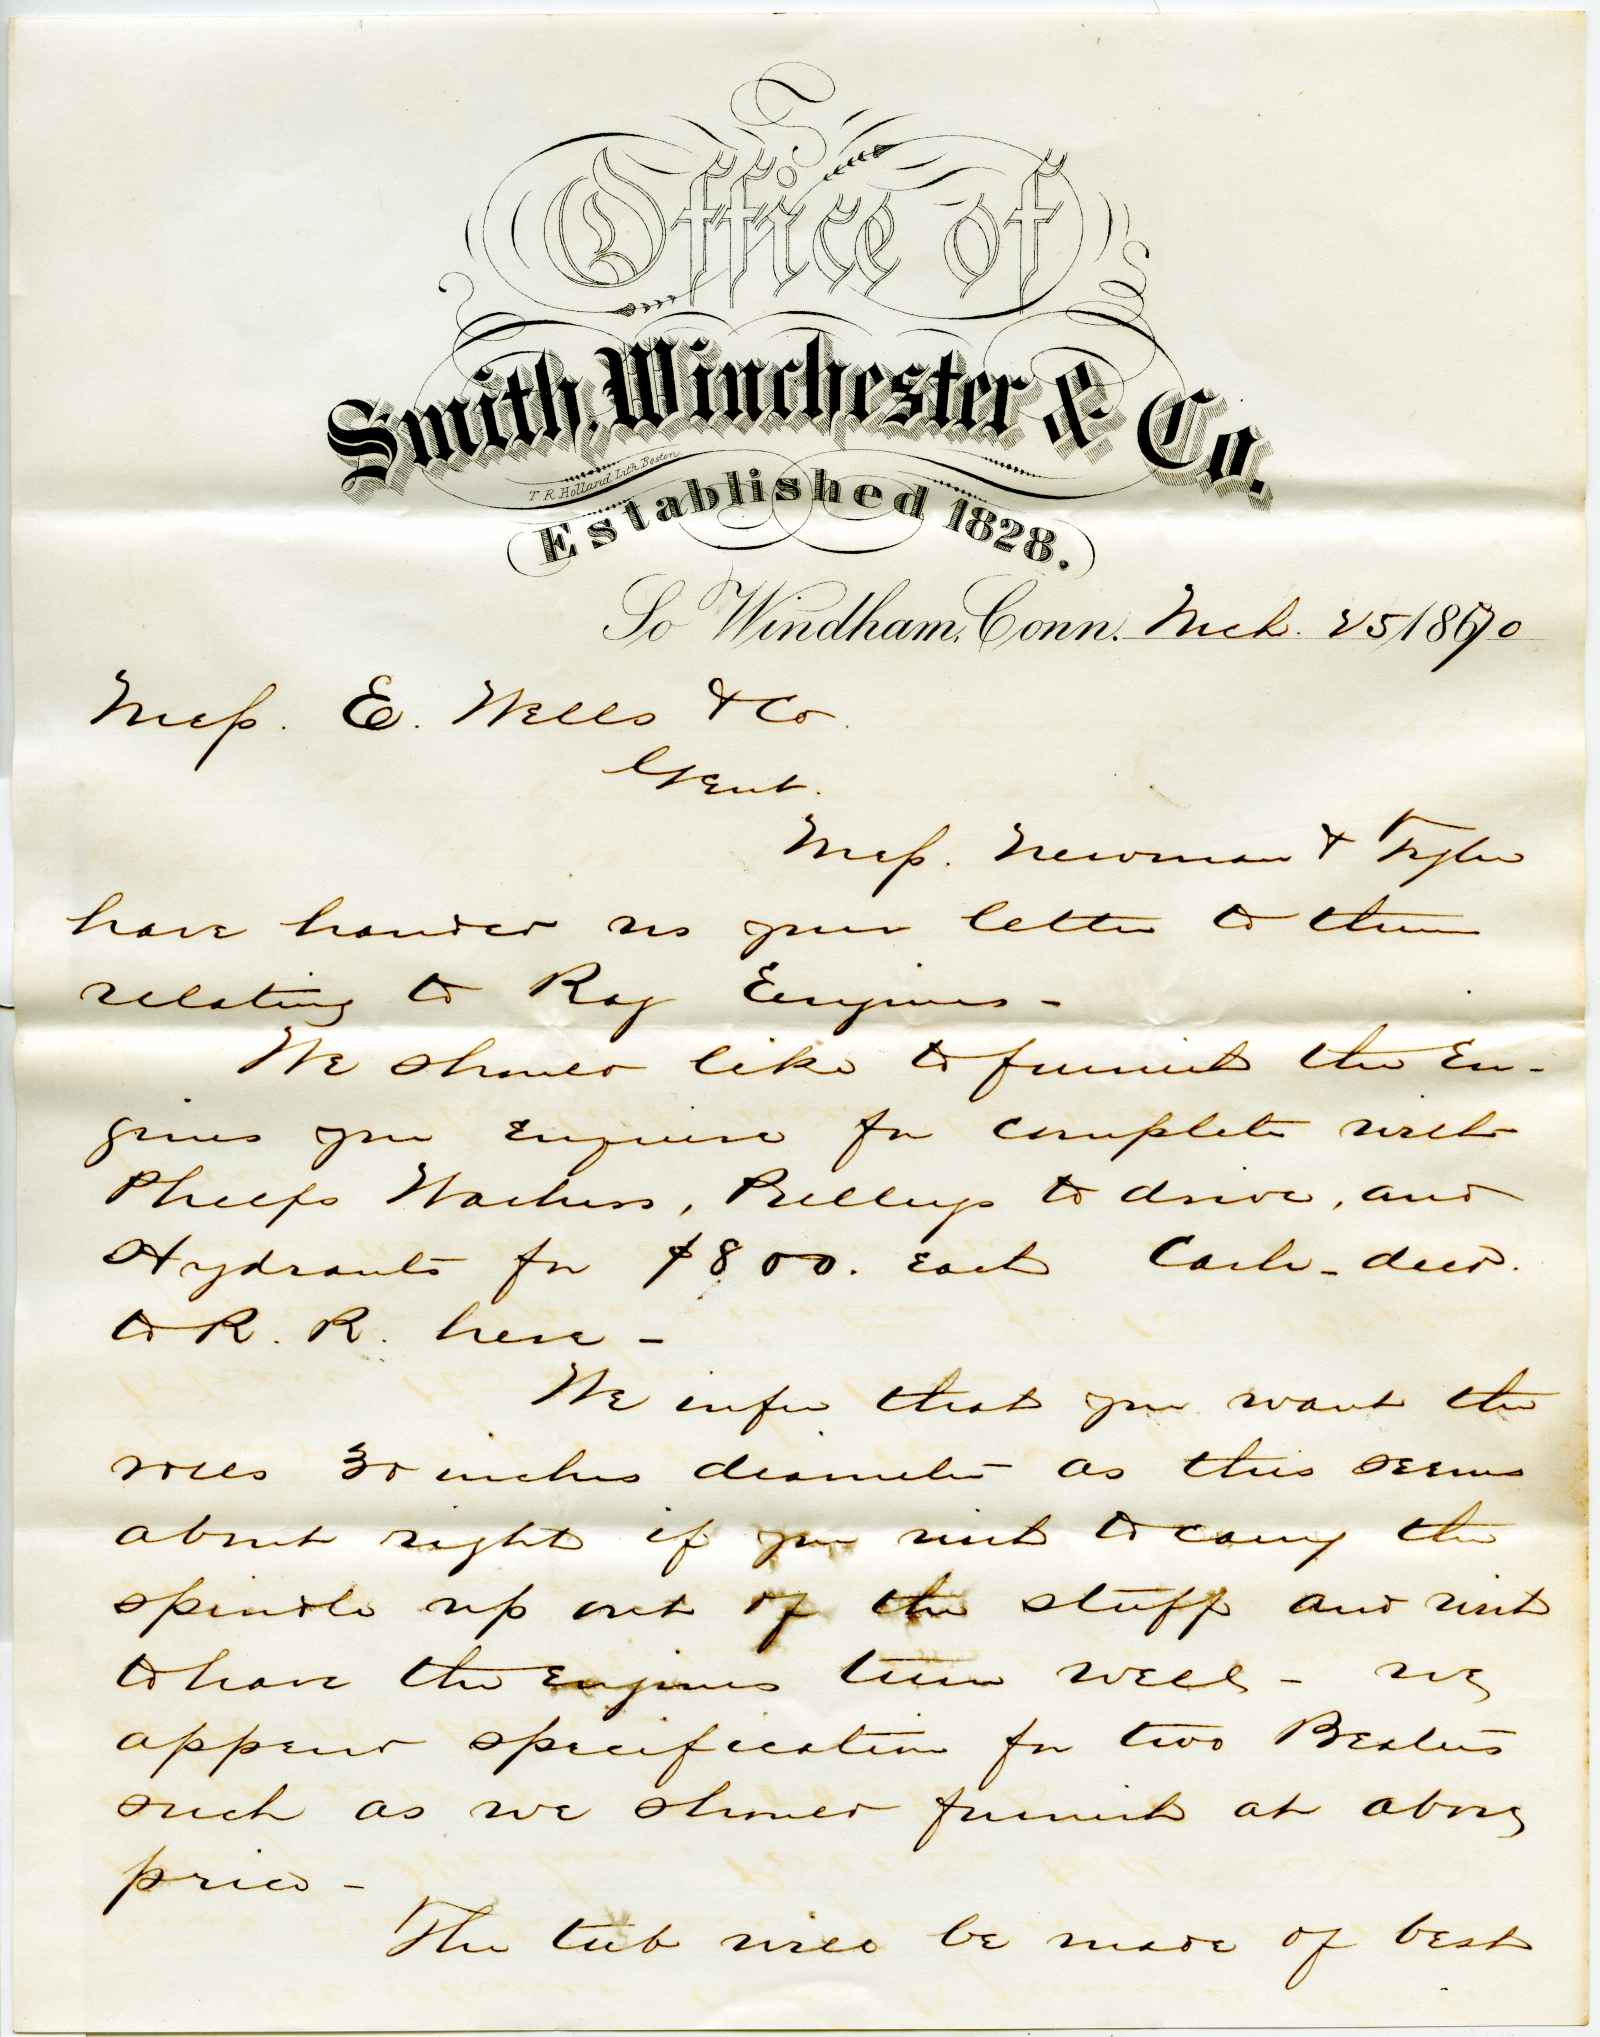 Office of
Smith, Winchester & Co.
T R Holland Lith Boston
Established 1828.
So Windham, Conn. Mch. 25 1870
Mess. E. Wells & Co.
Gent.
Mess. Newman & Tyler
have handed us your letter to them
relating to Rag Engines -
We should like to furnish the En-
gines you enquire for complete with
Phelps Washers, Pulleys to drive, and
Hydrants for $800. each Cash - deld.
to R. R. here -
We infer that you want the
rolls 30 inches diameter as this seems
about right if you wish to carry the
spindle up out of the stuff and wish
to have the Engines turn well - we
append specification for two Beaters
such as we should furnish at above
price -
The tub will be made of best